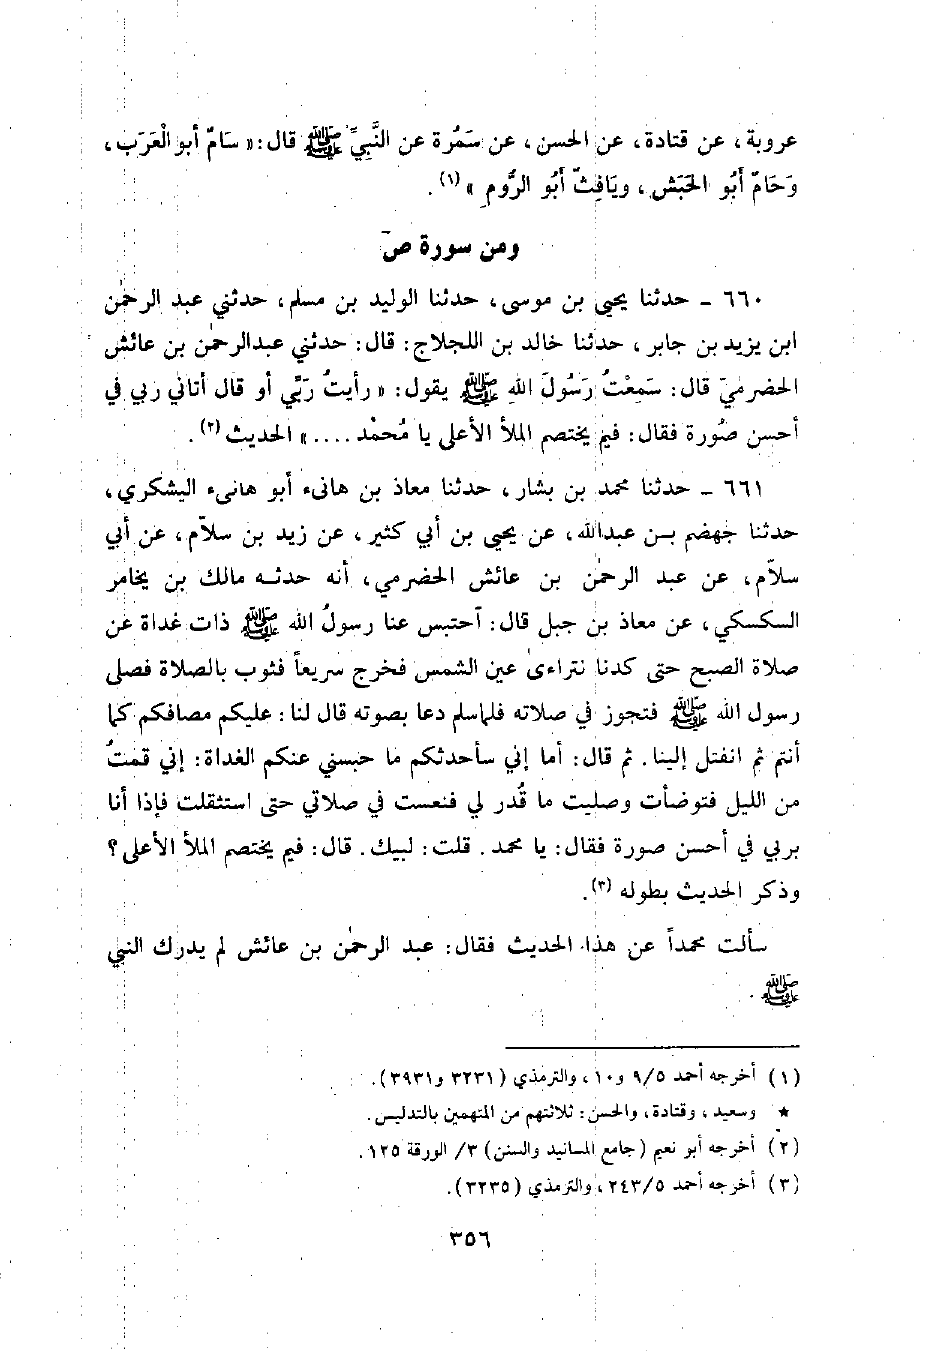 عروبة، عن قتادة، عن الحسن، عن سَمُرة عن النَّبِيِّ ﷺ قال: « سَامٌ أبو الْعَرَب،
وَحَامٌ أَبُو الحَبَش، ويَافِثٌ أَبُو الرُّومِ » (١).
ومن سورة صَ
٦٦٠ ـ حدثنا يحيى بن موسى، حدثنا الوليد بن مسلم، حدثني عبد الرحمٰن
ابن يزيد بن جابر، حدثنا خالد بن اللجلاج: قال: حدثني عبدالرحمٰن بن عائش
الحضرميّ قال: سَمِعْتُ رَسُولَ الله ﷺ يقول: « رأيتُ رَبِّي أو قال أتاني ربي في
أحسن صُورة فقال: فيم يختصم الملأ الأعلى يا مُحمْد .... » الحديث (٢).
٦٦١ ـ حدثنا محمد بن بشار، حدثنا معاذ بن هانىء أبو هانىء اليشكري،
حدثنا جهضم بن عبدالله، عن يحيى بن أبي كثير، عن زيد بن سلاّم، عن أبي
سلاّم، عن عبد الرحمٰن بن عائش الحضرمي، أنه حدثه مالك بن يخامر
السكسكي، عن معاذ بن جبل قال: آحتبس عنا رسولُ الله ﷺ ذات غداة عن
صلاة الصبح حتى كدنا نتراءىٰ عين الشمس فخرج سريعاً فثوب بالصلاة فصلى
رسول الله ﷺ فتجوز في صلاته فلما سلم دعا بصوته قال لنا: عليكم مصافكم كما
أنتم ثم انفتل إلينا. ثم قال: أما إني سأحدثكم ما حبسني عنكم الغداة: إني قمتُ
من الليل فتوضأت وصليت ما قُدر لي فنعست في صلاتي حتى استثقلت فإذا أنا
بربي في أحسن صورة فقال: يا محمد. قلت: لبيك. قال: فيم يختصم الملأ الأعلى؟
وذكر الحديث بطوله (٣).
سألت محمداً عن هذا الحديث فقال: عبد الرحمٰن بن عائش لم يدرك النبي
ﷺ.
(١) أخرجه أحمد ٩/٥ و١٠، والترمذي (٣٢٣١ و٣٩٣١).
★ وسعيد، وقتادة، والحسن: ثلاثتهم من المتهمين بالتدليس.
(٢) أخرجه أبو نعيم (جامع المسانيد والسنن) ٣/ الورقة ١٢٥.
(٣) أخرجه أحمد ٢٤٣/٥، والترمذي (٣٢٣٥).
٣٥٦